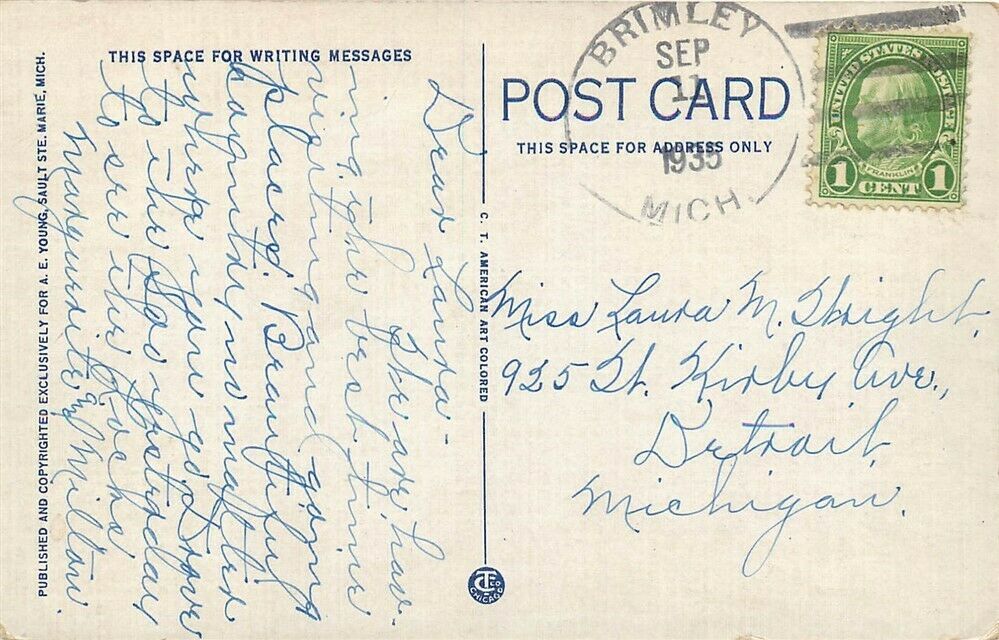 THIS SPACE FOR WRITING MESSAGES
Dear Laura -
We are hav-
ing the best time
visiting and going
places. Beautiful
country no matter
where you go. Drove
to the Soo yesterday
to see the Locks.
Marguerite & Milton.
PUBLISHED AND COPYRIGHTED EXCLUSIVELY FOR A. E. YOUNG, SAULT STE. MARIE, MICH.
C. T. AMERICAN ART COLORED
CT CO
CHICAGO
POST CARD
THIS SPACE FOR ADDRESS ONLY
BRIMLEY
SEP
11
1935
MICH.
UNITED STATES POSTAGE
FRANKLIN
1 CENT 1
Miss Laura M. Wright,
925 W. Kirby Ave.,
Detroit,
Michigan.